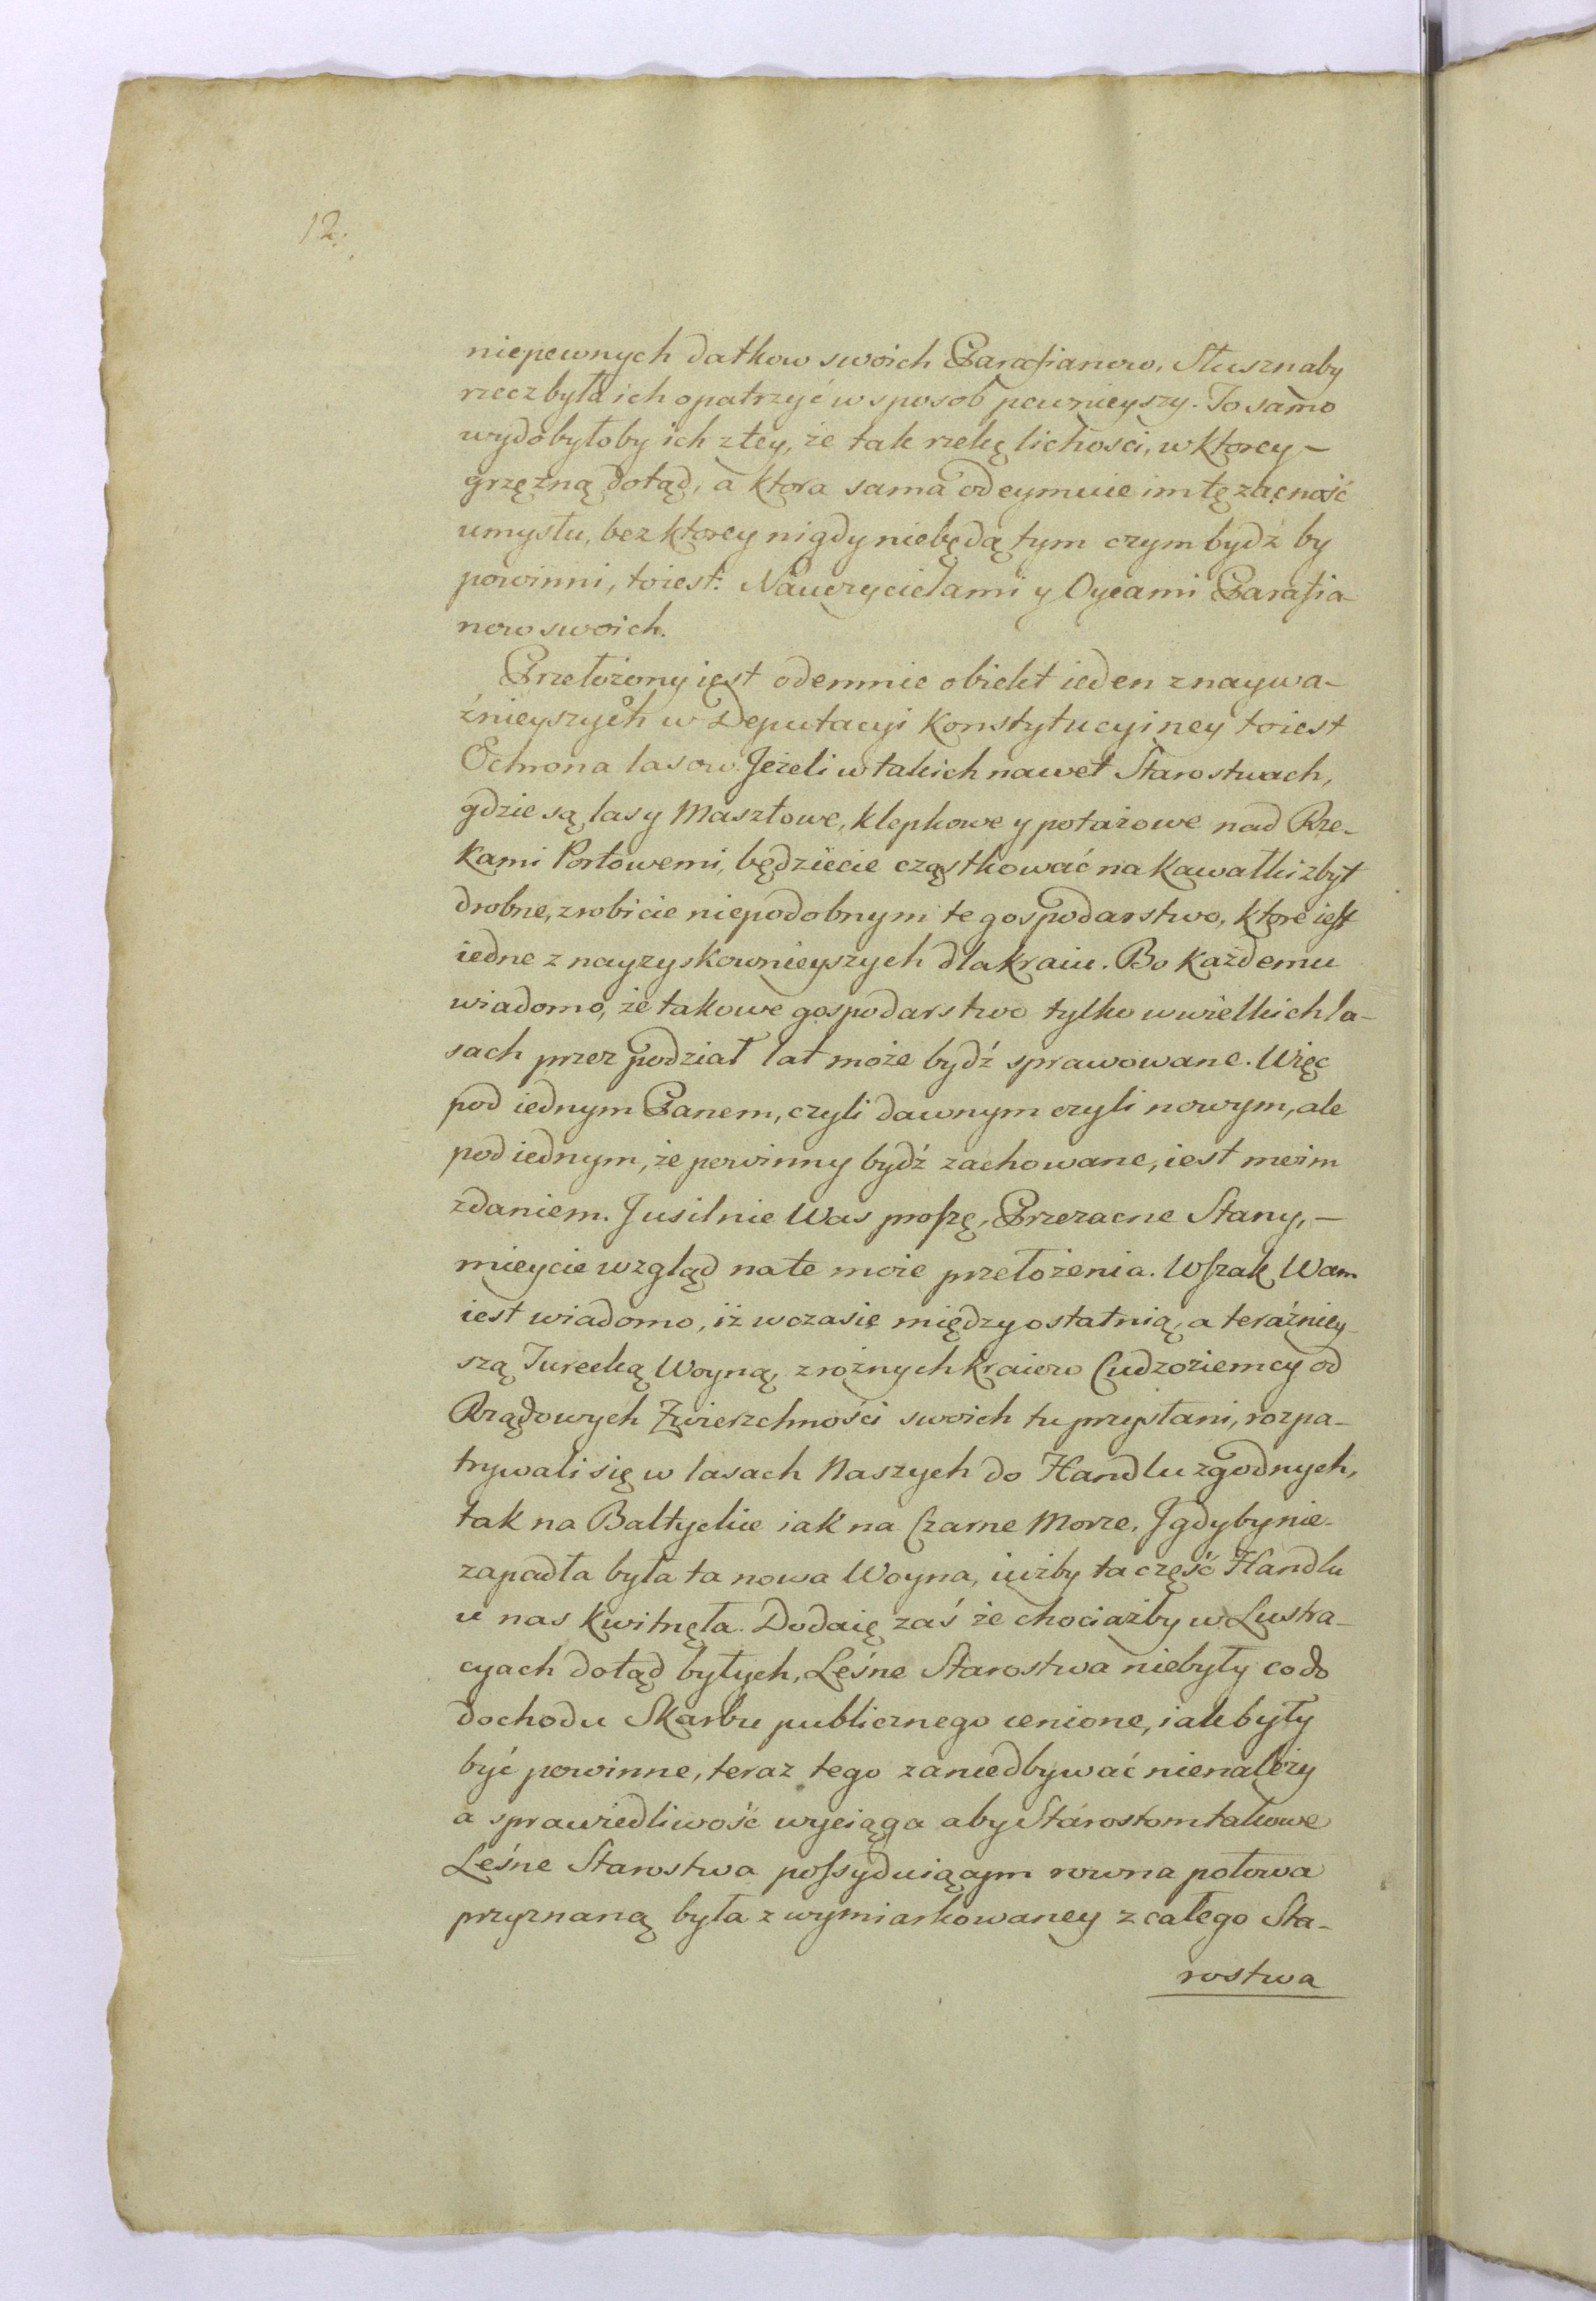 12.
niepewnych datkow swoich Parafianow, Słusznaby
rzecz była ich opatrzyć w sposob pewnieyszy. To samo
wydobyłoby ich z tey, że tak rzekę lichości, w ktorey –
grzęzną dotąd, a ktora sama odeymuie im tę zacność
umysłu, bez ktorey nigdy niebędą tym czym bydź by
powinni, toiest: Nauczycielami y Oycami Parafia-
now swoich.
Przełożony iest odemnie obiekt ieden z naywa-
żnieyszych w Deputacyi Konstytucyiney toiest
Ochrona lasow. Jeżeli w takich nawet Starostwach,
gdzie są lasy Masztowe, klepkowe y potażowe nad Rze-
kami Portowemi, będziecie cząstkować na kawałki zbyt
drobne, zrobicie niepodobnym te gospodarstwo, ktore iest
iedne z nayzyskownieyszych dla kraiu. Bo każdemu
wiadomo, że takowe gospodarstwo tylko w wielkich la-
sach przez podział lat może bydź sprawowane. Więc
pod iednym Panem, czyli dawnym czyli nowym, ale
pod iednym, że powinny bydź zachowane, iest moim
zdaniem. J usilnie Was proszę, Przezacne Stany, –
mieycie wzgląd na te moie przełożenia. Wszak Wam
iest wiadomo, iż w czasie między ostatnią, a teraźniey-
szą Turecką Woyną, z rożnych kraiow Cudzoziemcy od
Rządowych Zwierzchności swoich tu przysłani, rozpa-
trywali się w lasach Naszych do Handlu zgodnych,
tak na Baltyckie iak na Czarne Morze, J gdyby nie-
zapadła była ta nowa Woyna, iużby ta część Handlu
u nas kwitnęła. Dodaię zaś że chociażby w Lustra-
cyach dotąd byłych, Leśne Starostwa niebyły co do
dochodu Skarbu publicznego cenione, iak były
być powinne, teraz tego zaniedbywać nienależy
a sprawiedliwość wyciąga aby Starostom takowe
Leśne Starostwa possyduiącym rowna połowa
przyznaną była z wymiarkowaney z całego Sta-
rostwa